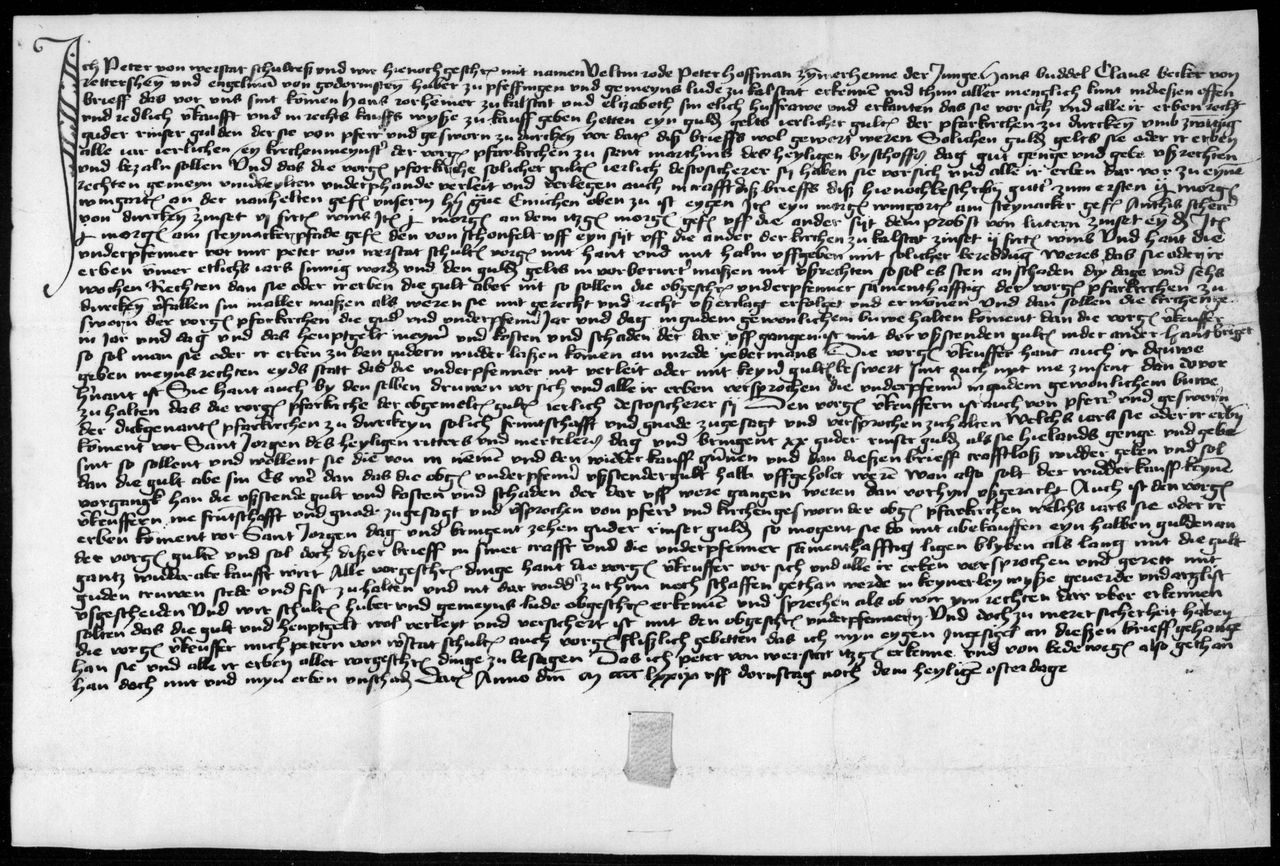 Ich Peter von werstat schulteß und wir hienochgeschr mit namen Veltin rode Peter hoffman zymerhenne der Junge Hans buddel Claus becker von
rettershem und engelman von godernsteyn huber zu pfeffingen und gemeyns lude zu kalstat erkennen und thun aller menglich kunt in dießen offen
brieff das vor uns sint komen Hans rorhemer zu kalstat und Elizabeth sin elich hussfrawe und erkanten das sie vor sich und alle ir erben recht
und redlich vkaufft und in rechts kauffs wyße zu kauff geben hetten eyn guld gelts ierlicher gulten der pfarkirchen zu durcken umb zwentzig
guder rinser gulden der sie von pferr und gesworn zu durcken vor dato diß brieffs wol gewert weren Solichen guld gelts sie oder ir erben
alle iar ierlichen eyn kirchenmeynster der vorg pfarkirchen zu sent marthins des heyligen byschoffs dag gut genge und gebe ußrechten
und bezaln sollen Und das die vorg pfarkirche solicher gulten ierlich destosicherer sij haben sie vor sich und alle ir erben dar vor zu eyme
rechten gemeyn unverdeylten underphande verleit und verlegen auch in crafft diß brieffs diß hienochbeschrben gutter zum ersten ij morgen
wingarten an der nauhelten gefor unserm hern grave Emichen oben zu ist eygen Item eyn margen wingarts am steynacker gefor scherer
von durcken zinset vj firtel wins Item j morgen an dem itzgen morgen gefor uff die ander sijt dem probst von lutern zinset ey d Item
j morgen am steynackerpfade gefor den von schonfelt uff eyn sijt uff die ander der kirchen zu kalstat zinset ij firtel wins Und hant die
underpfenner vor mir peter von werstat schulten vorg mit hant und mit halm uffgeben mit solicher beredung Weres das sie oder ir
erben ummer etlichs iars sumig worden und den guld gelts in vorberurter maßen nit ußrechten so sol es sten an schaden dry dage und sehs
wochen Rechten dan sie oder ir erben die gult aber nit so sollen die obgeschr underpfenner samenthafftig der vorg pfarkirchen zu
durcken vfallen sin in aller maßen als weren sie mit gericht und recht ußerclagt erfolget und erwonnen und dan sollen die kirchen ge
sworn der vorg pfarkirchen die gud und underpfenner Jar und dag in gudem gewonlichem buwe halten koment dan die vorg vkeuffer
in Jar und dag und das heuptgelt meynen und kosten und schaden der dar uff gangen ist mit der ußstenden gulten in der ander hant bringet
so sol man sie oder ir erben zu den gudern widder laßen komen an inrede yedermans Die vorg vkeuffer hant auch ir druwe
geben meyns rechten eyds statt das die underpfenner nit verleit oder mit keyner gulten beswert sint auch nyt me zinsent dan vor
benant ist Sie hant auch by den selben druwen vor sich und alle ir erben versprochen die underpfenner in gudem gewonlichem buwe
zu halten das die vorg pfarkirche der obgemelten gulten ierlich destosicherer sij Den vorg vkeuffern ist auch von pferr und gesworn
der dickgenanten pfarkirchen zu durckeyn solich fruntschafft und gnade zugesagt und versprochen zuhalten Welchs iars sie oder ir erben
koment vor Sant Jorgen des heyligen ritters und mertelers dag und bringent xx guder rinser guld als sie hielands genge und gebe
sint so sollent und wellent sie die von in nemen und den wieder kauff gunnen und dan dießen brieff crafftloß widder geben und sol
dan die gult abe sin Es were dan das die obg underpfenner ußstendergult halb uffgeholet weren Wan also solt der widderkauff keynen
vorgangk han die ußstende gult und kosten und schaden der dar uff were gangen weren dan vorhyn ußgeracht Auch ist den vorg
vkeuffern me fruntschafft und gnade zugesagt und vsprochen von pferr und kirchengesworn der obg pfarkirchen welchs iars sie oder ir
erben koment vor Sant Jorgen dag und bringent zehen guder rinser guld so mogent sie do mit abekauffen eyn halben gulden an
der vorg gulten und sol doch dißer brieff in siner crafft und die underpfenner samenthafftig ligen blyben als lang mit die gult
gantz widder abe kaufft wirt Alle vorgeschr dinge hant die vorg vkeuffer vor sich und alle ir erben versprochen und gerett mit
guden truwen stede und fest zuhalten und nit dar widder zu thun noch schaffen gethan werde in keynerley wyße geverde und arglist
ußgescheiden Und wir schulten huber und gemeyns lude obgeschr erkennen und sprechen als ob wir ym rechten dar uber erkennen
solten das die gult und heuptgelt wol verleyt und versichert ist mit den obgeschr underpfennern Und doch zu merer sicherheit haben
die vorg vkeuffer mich petern von werstat schulten auch vorg flißlich gebetten das ich myn eygen Ingesigel an dießen brieff gehangen
han sie und alle ir erben aller vorgeschr dinge zu besagen Das ich peter von werstat itzg erkenne und von bede weg also gethan
han doch mir und myn erben unschad Dat Anno dm lxxix uff dornstag noch dem heyligen osterdage